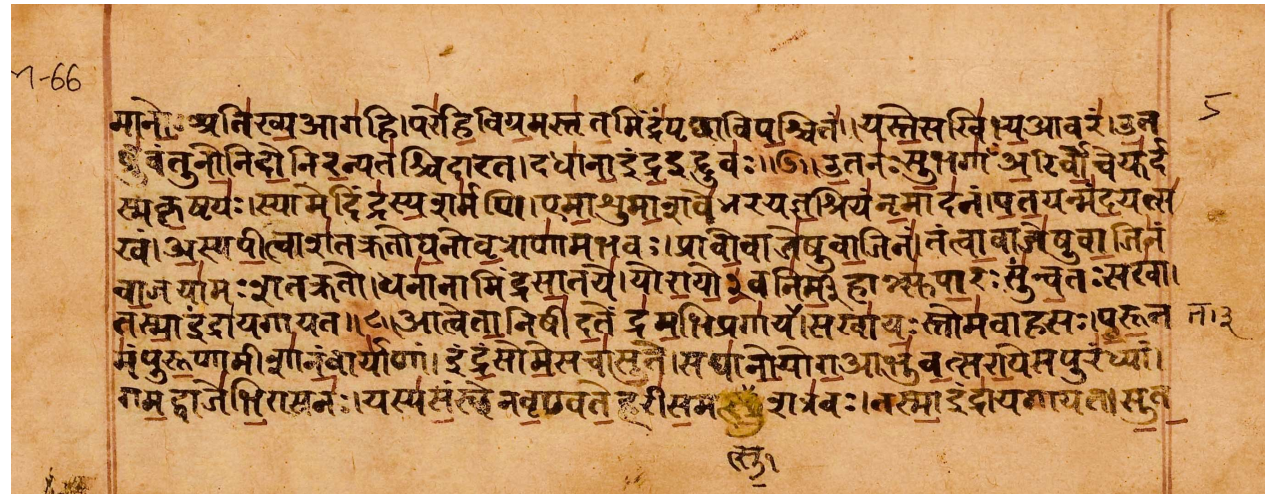 M-66
मानोअतिख्यआगहि।परेहिविग्रमस्तृतमिंद्रंपृच्छाविपश्चितं।यस्तेसखिभ्यआवरं।उत
5
ब्रुवंतुनोनिदोनिरन्यतश्चिदारत।दधानाइंद्रइद्दुवः॥७॥उतनःसुभगाँअरिर्वोचेयुर्द
स्मकृष्टयः।स्यामेदिंद्रस्यशर्मणि।एमाशुमाशवेभरयज्ञश्रियंनृमादनं।पतयन्मंदयत्स
खं।अस्यपीत्वाशतक्रतोघनोवृत्राणामभवः।प्रावोवाजेषुवाजिनं।तंत्वावाजेषुवाजिनं
वाजयामःशतक्रतो।धनानामिंद्रसातये।योरायो३वनिर्महान्त्सुपारःसुन्वतःसखा।
तस्माइंद्रायगायत॥८॥आत्वेतानिषीदतेंद्रमभिप्रगायत।सखायःस्तोमवाहसः।पुरूत
मंपुरूणामीशानंवार्याणां।इंद्रंसोमेसचासुते।सघानोयोगआभुवत्सरायेसपुरंध्यां।
गमद्वाजेभिरासनः।यस्यसंस्थेनवृण्वतेहरीसमत्सुशत्रवः।तस्माइंद्रायगायत।सुत
त्सु१